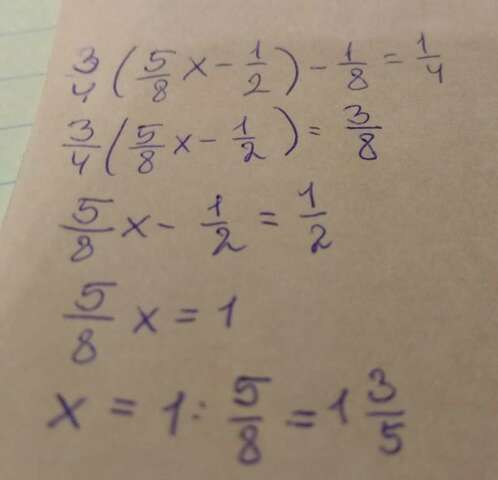 3/4 (5/8 x - 1/2) - 1/8 = 1/4
3/4 (5/8 x - 1/2) = 3/8
5/8 x - 1/2 = 1/2
5/8 x = 1
x = 1 : 5/8 = 1 3/5